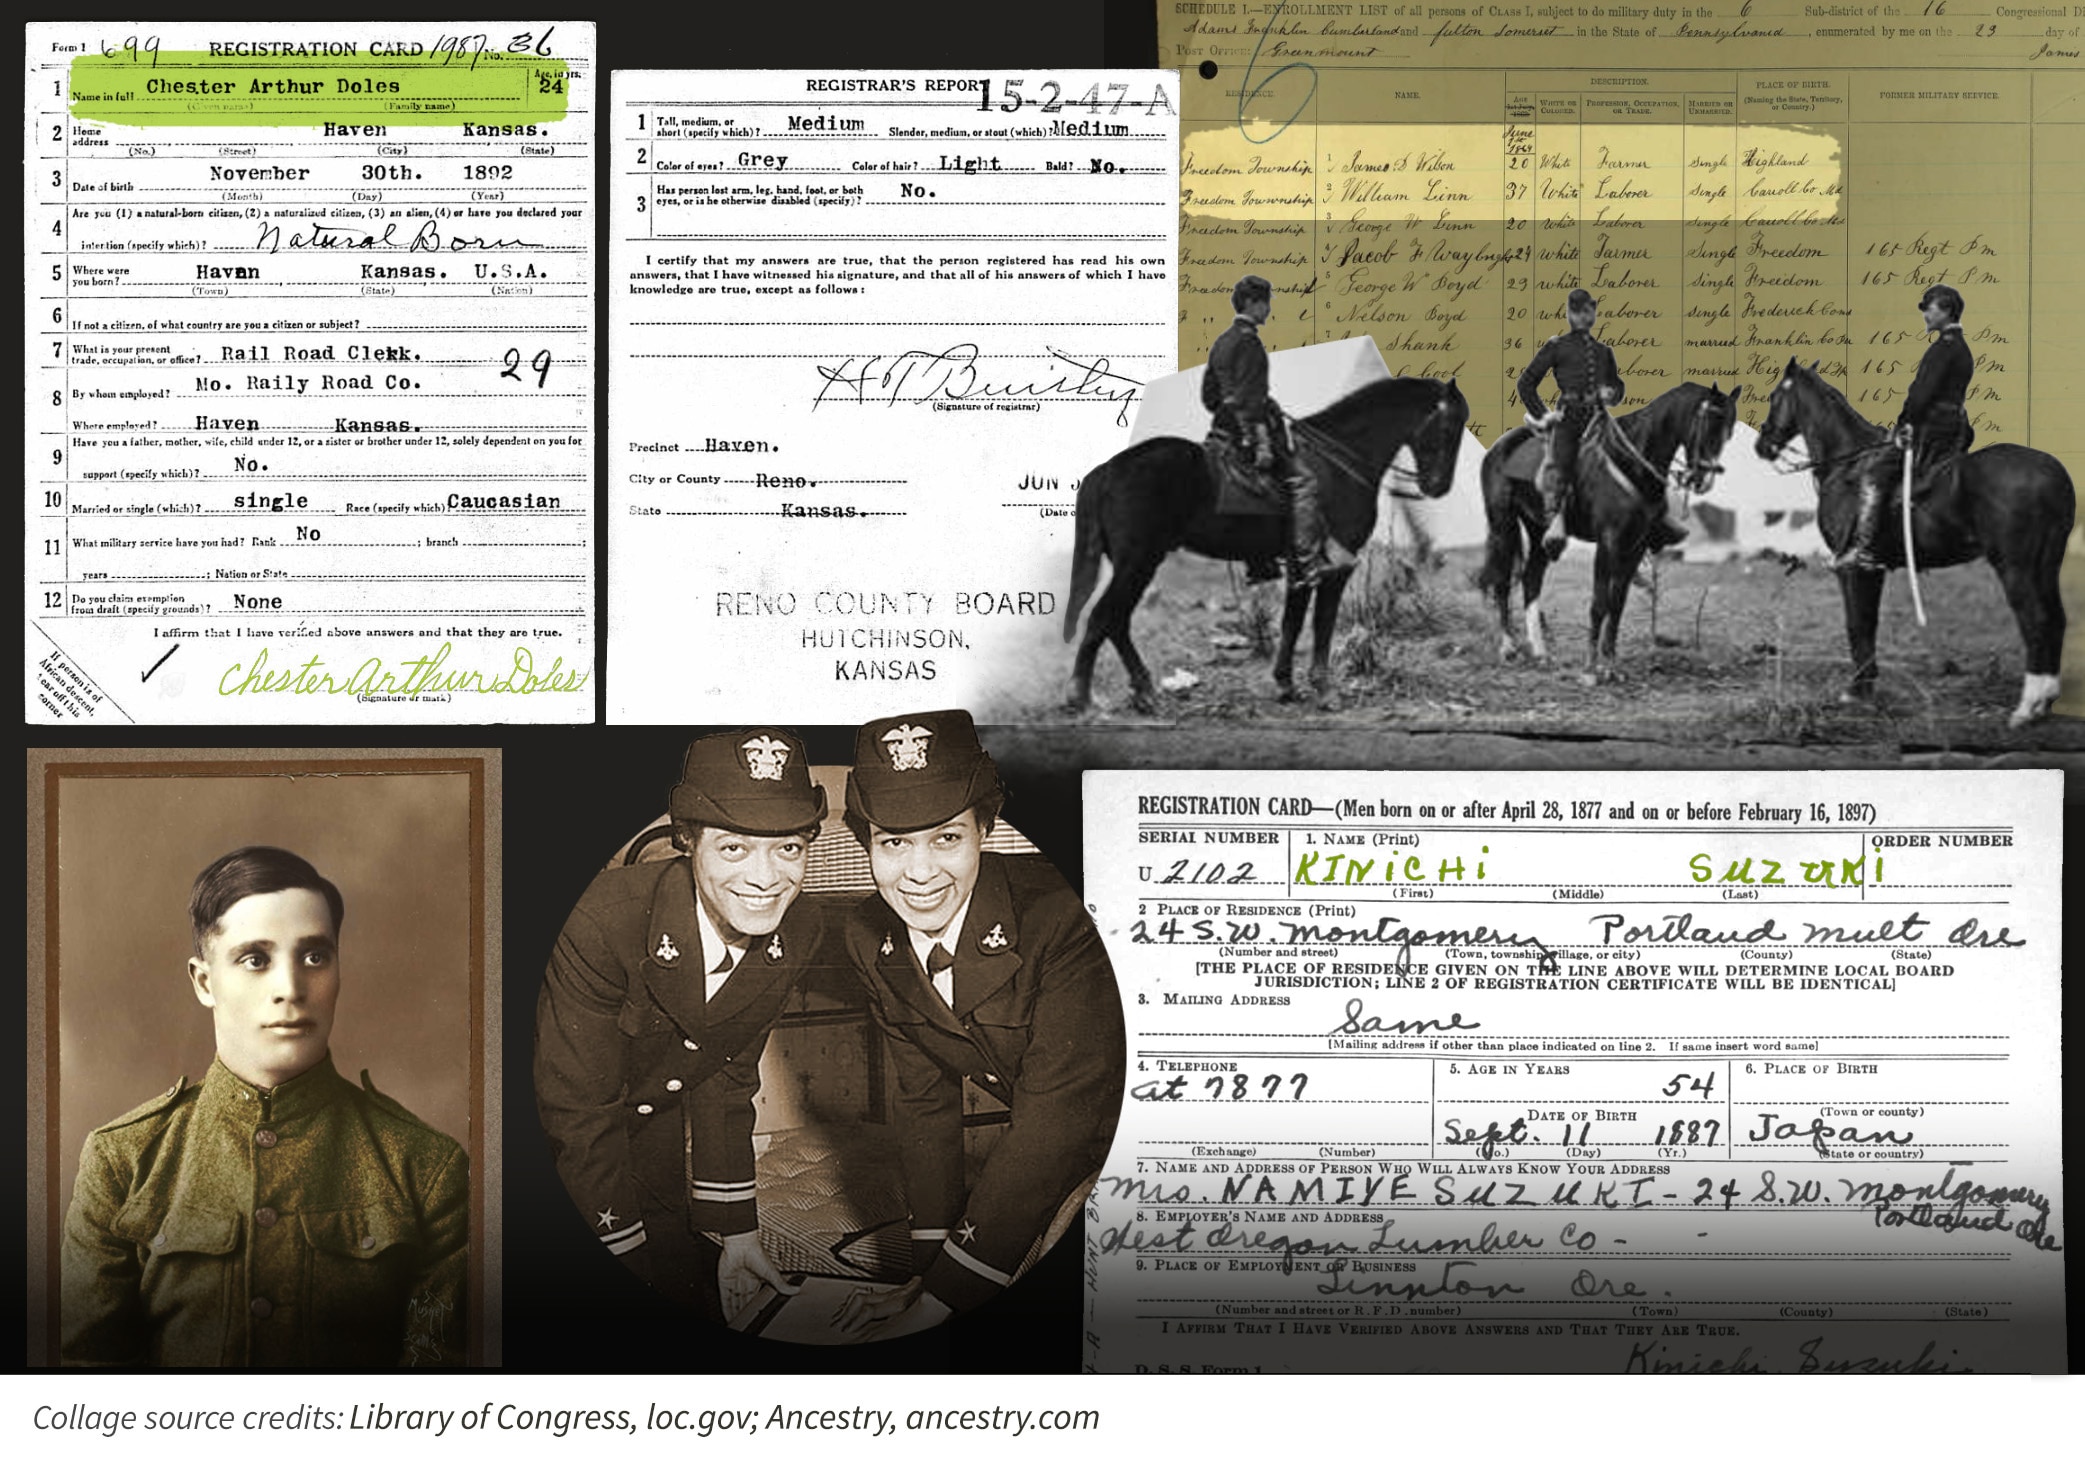 Form 1 699 REGISTRATION CARD 1987 No. 36
1 Name in full Chester Arthur Doles Age, in yrs. 24
(Given name) (Family name)
2 Home address Haven Kansas.
(No.) (Street) (City) (State)
3 Date of birth November 30th. 1892
(Month) (Day) (Year)
4 Are you (1) a natural-born citizen, (2) a naturalized citizen, (3) an alien, (4) or have you declared your
intention (specify which)? Natural Born
5 Where were you born? Haven Kansas. U.S.A.
(Town) (State) (Nation)
6 If not a citizen, of what country are you a citizen or subject?
7 What is your present trade, occupation, or office? Rail Road Clekk. 29
8 By whom employed? Mo. Raily Road Co.
Where employed? Haven Kansas.
9 Have you a father, mother, wife, child under 12, or a sister or brother under 12, solely dependent on you for
support (specify which)? No.
10 Married or single (which)? single Race (specify which)? Caucasian
11 What military service have you had? Rank No ; branch ;
years ; Nation or State
12 Do you claim exemption from draft (specify grounds)? None
I affirm that I have verified above answers and that they are true.
Chester Arthur Doles
(Signature or mark)
If person is of
African descent,
tear off this
corner
REGISTRAR'S REPORT 15-2-47-A
1 Tall, medium, or short (specify which)? Medium Slender, medium, or stout (which)? Medium
2 Color of eyes? Grey Color of hair? Light Bald? No.
3 Has person lost arm, leg, hand, foot, or both eyes, or is he otherwise disabled (specify)? No.
I certify that my answers are true, that the person registered has read his own
answers, that I have witnessed his signature, and that all of his answers of which I have
knowledge are true, except as follows:
(Signature of registrar)
Precinct Haven.
City or County Reno. JUN
State Kansas. (Date o
RENO COUNTY BOARD
HUTCHINSON,
KANSAS
SCHEDULE I.—ENROLLMENT LIST of all persons of CLASS I, subject to do military duty in the 6 Sub-district of the 16 Congressional Di
Adams Franklin Cumberland and fulton Somerset in the State of Pennsylvania, enumerated by me on the 23 day of
Post Office: Greenmount James
RESIDENCE. NAME. DESCRIPTION. PLACE OF BIRTH. FORMER MILITARY SERVICE.
AGE WHITE OR COLORED. PROFESSION, OCCUPATION, OR TRADE. MARRIED OR UNMARRIED. (Naming the State, Territory, or Country.)
June 1st 1864
Freedom Township 1 James S Wilson 20 White Farmer Single Highland
Freedom Township 2 William Linn 37 White Laborer Single Carroll Co. Md
Freedom Township 3 George W Linn 20 White Laborer Single Carroll Co Md
Freedom Township 4 Jacob F 29 White Farmer Single Freedom 165 Regt P m
Freedom 5 George W Boyd 23 white Laborer Single Freedom 165 Regt P m
6 Nelson Boyd 20 Laborer Single Frederick
Shank 36 Laborer married Franklin Co Pa 165 P m
married 165 P m
165 P m
REGISTRATION CARD—(Men born on or after April 28, 1877 and on or before February 16, 1897)
SERIAL NUMBER 1. NAME (Print) ORDER NUMBER
U 2102 KINICHI SUZUKI
(First) (Middle) (Last)
2 PLACE OF RESIDENCE (Print)
24 S.W. Montgomery Portland mult Ore
(Number and street) (Town, township, village, or city) (County) (State)
[THE PLACE OF RESIDENCE GIVEN ON THE LINE ABOVE WILL DETERMINE LOCAL BOARD
JURISDICTION; LINE 2 OF REGISTRATION CERTIFICATE WILL BE IDENTICAL]
3. MAILING ADDRESS
Same
[Mailing address if other than place indicated on line 2. If same insert word same]
4. TELEPHONE 5. AGE IN YEARS 6. PLACE OF BIRTH
at 7877 54
DATE OF BIRTH (Town or county)
Sept. 11 1887 Japan
(Exchange) (Number) (Mo.) (Day) (Yr.) (State or country)
7. NAME AND ADDRESS OF PERSON WHO WILL ALWAYS KNOW YOUR ADDRESS
Mrs. NAMIYE SUZUKI - 24 S.W. Montgomery
Portland Ore
8. EMPLOYER'S NAME AND ADDRESS
West Oregon Lumber Co -
9. PLACE OF EMPLOYMENT OR BUSINESS
Linnton Ore.
(Number and street or R.F.D. number) (Town) (County) (State)
I AFFIRM THAT I HAVE VERIFIED ABOVE ANSWERS AND THAT THEY ARE TRUE.
D. S. S. Form 1 Kinichi Suzuki
Collage source credits: Library of Congress, loc.gov; Ancestry, ancestry.com